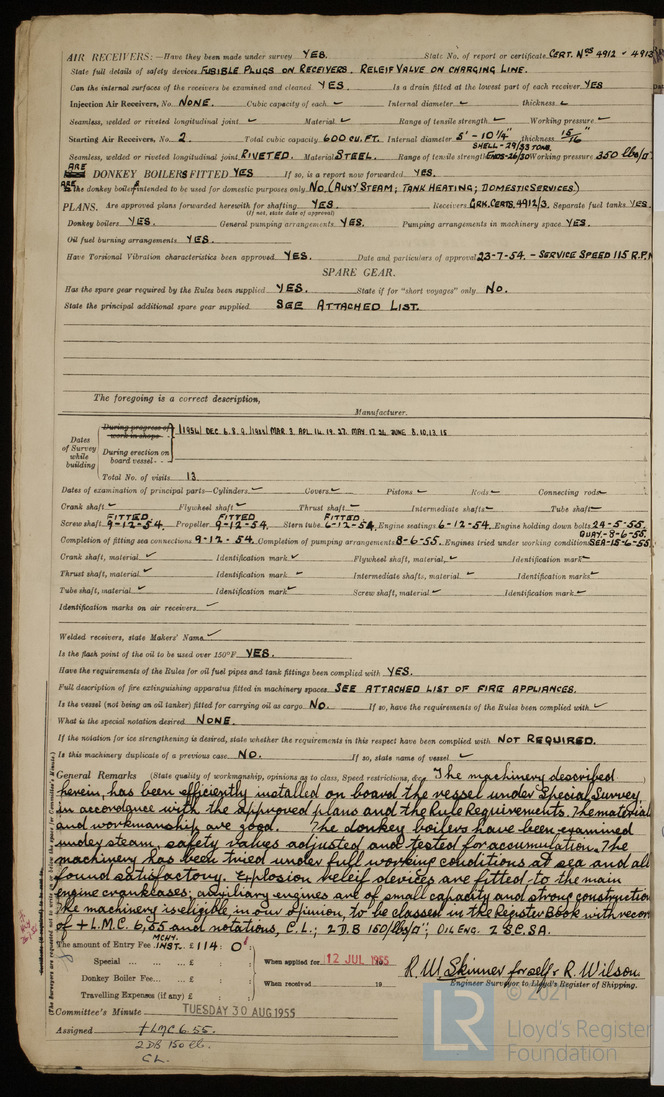 AIR RECEIVERS:—Have they been made under survey YES. State No. of report or certificate CERT. Nos 4912 - 4913
State full details of safety devices FUSIBLE PLUGS ON RECEIVERS. RELEIF VALVE ON CHARGING LINE.
Can the internal surfaces of the receivers be examined and cleaned YES. Is a drain fitted at the lowest part of each receiver YES
Injection Air Receivers, No. NONE. Cubic capacity of each ✓ Internal diameter ✓ thickness ✓
Seamless, welded or riveted longitudinal joint ✓ Material ✓ Range of tensile strength ✓ Working pressure ✓
Starting Air Receivers, No. 2. Total cubic capacity 600 CU.FT. Internal diameter 5' - 10 1/4" thickness 15/16"
SHELL - 29/33 TONS.
Seamless, welded or riveted longitudinal joint RIVETED. Material STEEL. Range of tensile strength ENDS-26/30 Working pressure 350 lbs/□"
ARE
DONKEY BOILERS FITTED YES If so, is a report now forwarded YES.
ARE the donkey boilers intended to be used for domestic purposes only NO. (AUXY STEAM; TANK HEATING; DOMESTIC SERVICES)
PLANS. Are approved plans forwarded herewith for shafting YES. Receivers GRK.CERTS.4912/3. Separate fuel tanks YES.
(If not, state date of approval)
Donkey boilers YES. General pumping arrangements YES. Pumping arrangements in machinery space YES.
Oil fuel burning arrangements YES.
Have Torsional Vibration characteristics been approved YES. Date and particulars of approval 23-7-54. - SERVICE SPEED 115 R.P.M
SPARE GEAR.
Has the spare gear required by the Rules been supplied YES. State if for "short voyages" only NO.
State the principal additional spare gear supplied. SEE ATTACHED LIST.
The foregoing is a correct description,
Manufacturer.
Dates of Survey while building
During progress of work in shops - -
During erection on board vessel - - -
1954/ DEC. 6. 8. 9. /1955/ MAR 3. APL. 14. 19. 27. MAY. 17. 24. JUNE 8. 10. 13. 15
Total No. of visits 13.
Dates of examination of principal parts—Cylinders ✓ Covers ✓ Pistons ✓ Rods ✓ Connecting rods ✓
Crank shaft ✓ Flywheel shaft ✓ Thrust shaft ✓ Intermediate shafts ✓ Tube shaft ✓
FITTED FITTED FITTED
Screw shaft 9-12-54. Propeller 9-12-54. Stern tube 6-12-54. Engine seatings 6-12-54. Engine holding down bolts 24-5-55.
QUAY.- 8-6-55.
Completion of fitting sea connections 9-12-54. Completion of pumping arrangements 8-6-55. Engines tried under working conditions SEA-15-6-55.
Crank shaft, material ✓ Identification mark ✓ Flywheel shaft, material ✓ Identification mark ✓
Thrust shaft, material ✓ Identification mark ✓ Intermediate shafts, material ✓ Identification marks ✓
Tube shaft, material ✓ Identification mark ✓ Screw shaft, material ✓ Identification mark ✓
Identification marks on air receivers ✓
Welded receivers, state Makers' Name ✓
Is the flash point of the oil to be used over 150°F. YES.
Have the requirements of the Rules for oil fuel pipes and tank fittings been complied with YES.
Full description of fire extinguishing apparatus fitted in machinery spaces SEE ATTACHED LIST OF FIRE APPLIANCES.
Is the vessel (not being an oil tanker) fitted for carrying oil as cargo NO. If so, have the requirements of the Rules been complied with ✓
What is the special notation desired NONE.
If the notation for ice strengthening is desired, state whether the requirements in this respect have been complied with NOT REQUIRED.
Is this machinery duplicate of a previous case NO. If so, state name of vessel ✓
General Remarks (State quality of workmanship, opinions as to class, Speed restrictions, &c. The machinery described
herein, has been efficiently installed on board the vessel under Special Survey
in accordance with the approved plans and the Rule Requirements. The material
and workmanship are good. The donkey boilers have been examined
under steam, safety valves adjusted and tested for accumulation. The
machinery has been tried under full working conditions at sea and all
found satisfactory. Explosion releif devices are fitted to the main
engine crankcases; auxiliary engines are of small capacity and strong construction
The machinery is eligible in our opinion, to be classed in the Register Book with record
of + L.M.C. 6,55 and notations, C.L.; 2 D.B 150 lbs/□"; OIL ENG. 2 S.C.SA.
MCHY.
The amount of Entry Fee INST. £ 114 : 0 :
Special ... ... £ : :
Donkey Boiler Fee... ... £ : :
Travelling Expenses (if any) £ : :
When applied for 12 JUL 1955
When received 19
R.W. Skinner for self & R. Wilson.
Engineer Surveyor to Lloyd's Register of Shipping.
Committee's Minute TUESDAY 30 AUG 1955
Assigned + LMC 6.55.
2 DB 150 lb.
CL.
© 2021
LR
Lloyd's Register
Foundation